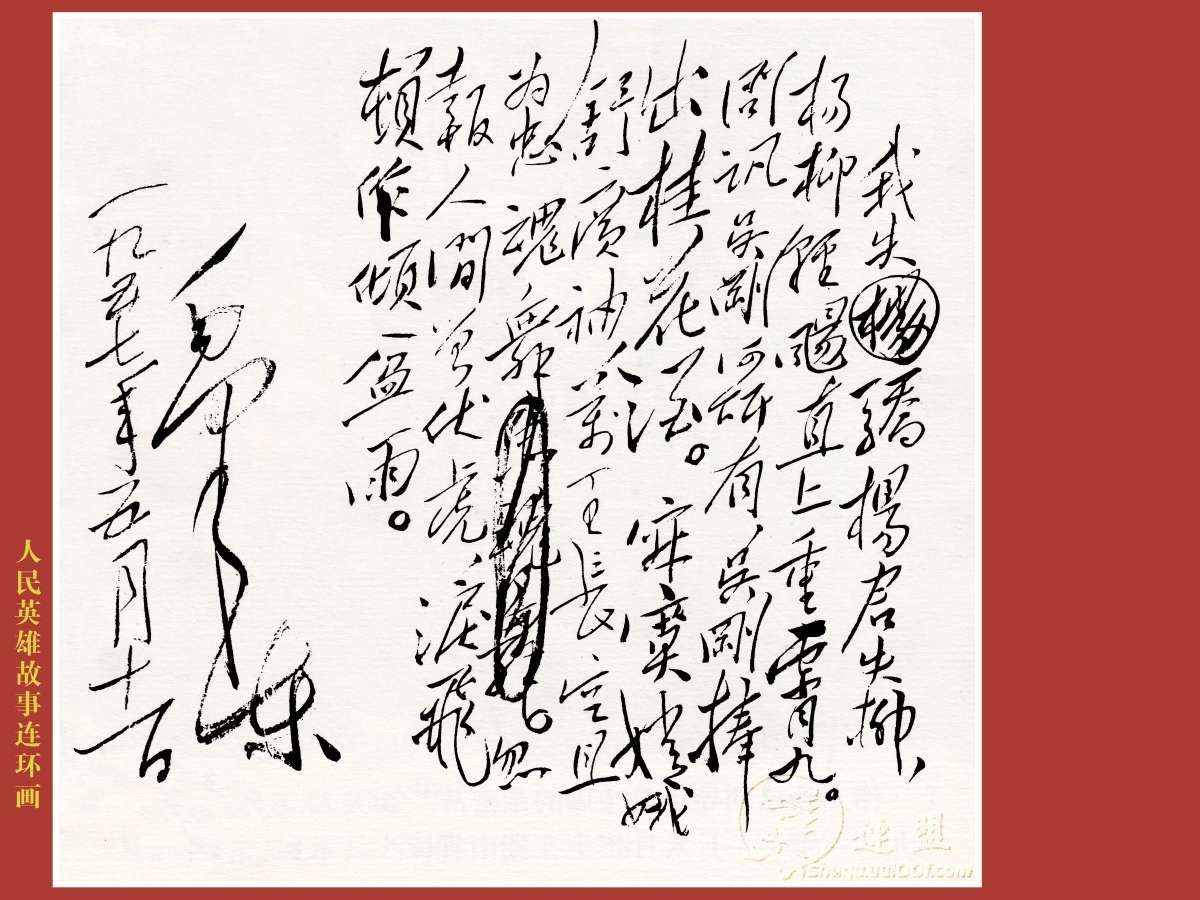 我失驕楊君失柳,
杨柳輕颺直上重霄九。
问讯吴剛何所有,吴剛捧
出桂花酒。寂寞嫦娥
舒廣袖,萬里長空且
为忠魂舞。忽
報人間曾伏虎,淚飛
頓作傾盆雨。
毛泽东
一九五七年五月十一日
人民英雄故事连环画